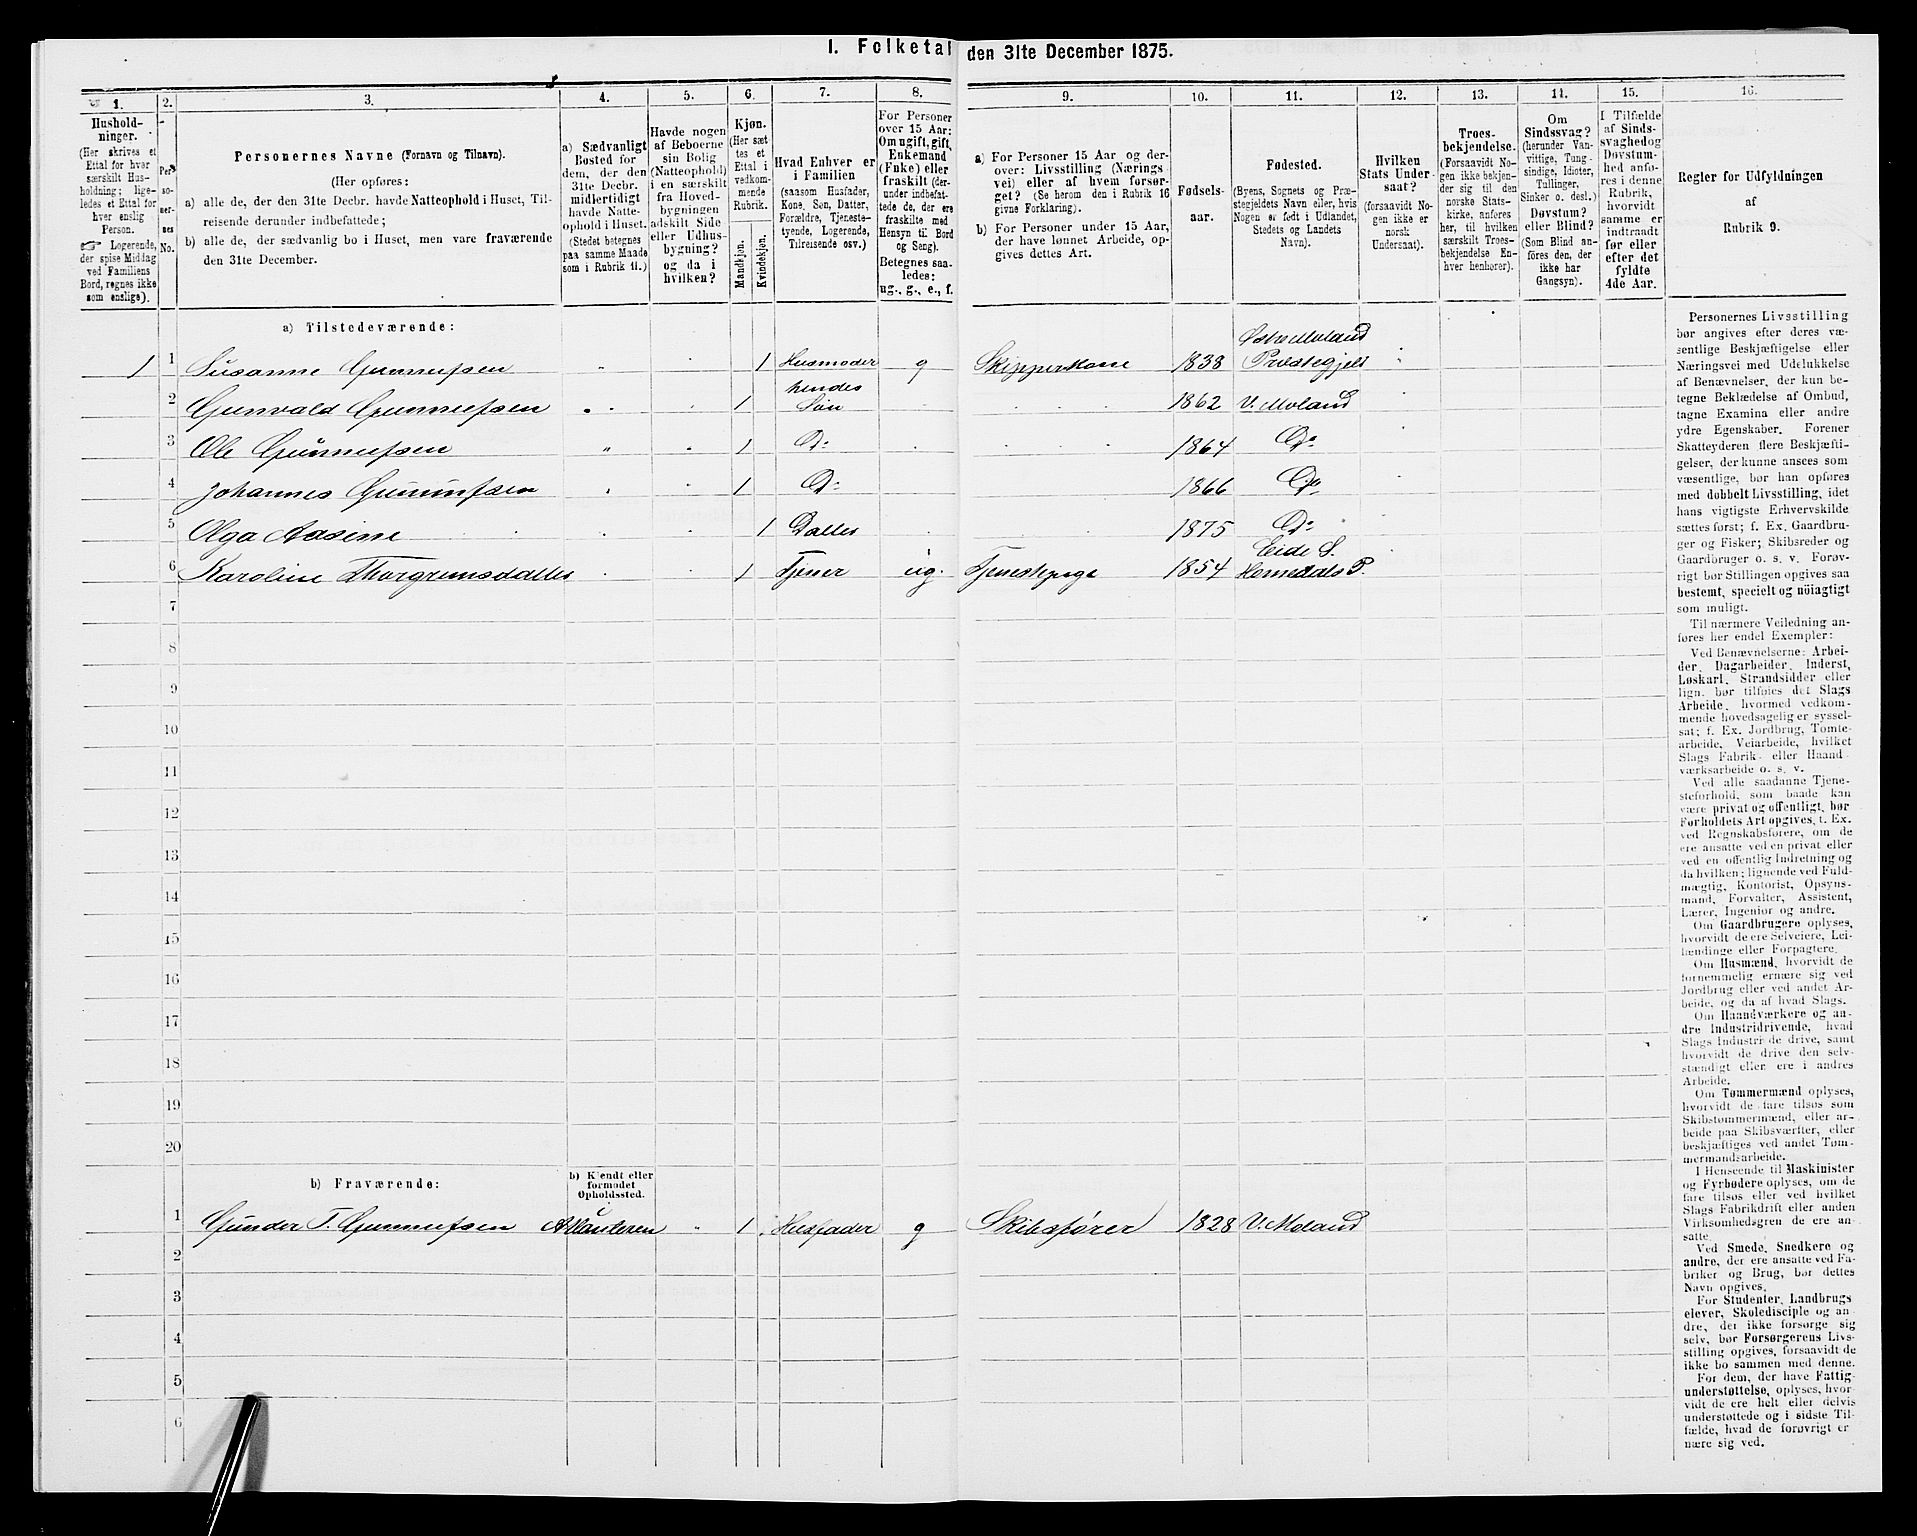 I. Folketal den 31te December 1875.
1. 2. 3. 4. 5. 6. 7. 8. 9. 10. 11. 12. 13. 14. 15. 16.
Hushold-
ninger.
(Her skrives et
Ettal for hver
særskilt Hus-
holdning; lige-
ledes et Ettal for
hver enslig
Person.
☞ Logerende,
der spise Middag
ved Familiens
Bord, regnes ikke
som enslige).
Per-
so-
ner-
nes
No.
Personernes Navne (Fornavn og Tilnavn).
(Her opføres:
a) alle de, der den 31te Decbr. havde Natteophold i Huset, Til-
reisende derunder indbefattede;
b) alle de, der sædvanlig bo i Huset, men vare fraværende
den 31te December.
a) Sædvanligt
Bosted for
dem, der den
31te Decbr.
midlertidigt
havde Natte-
ophold i Huset.
(Stedet betegnes
paa samme Maade
som i Rubrik 11.)
Havde nogen
af Beboerne
sin Bolig
(Natteophold)
i en særskilt
fra Hoved-
bygningen
adskilt Side-
eller Udhus-
bygning?
og da i
hvilken?
Kjøn.
(Her sæt
tes et
Ettal i
vedkom-
mende
Rubrik.
Mandkjøn.
Kvindekjøn.
Hvad Enhver er
i Familien
(saasom Husfader,
Kone, Søn, Datter,
Forældre, Tjeneste-
tyende, Logerende,
Tilreisende osv.)
For Personer
over 15 Aar:
Om ugift, gift,
Enkemand
(Enke) eller
fraskilt (der-
under indbefat-
tede de, der ere
fraskilte med
Hensyn til Bord
og Seng).
Betegnes saa-
ledes:
ug., g., e., f.
a) For Personer 15 Aar og der-
over: Livsstilling (Nærings-
vei) eller af hvem forsør-
get? (Se herom den i Rubrik 16
givne Forklaring).
b) For Personer under 15 Aar,
der have lønnet Arbeide, op-
gives dettes Art.
Fødsels-
aar.
Fødested.
(Byens, Sognets og Præ-
stegjeldets Navn eller, hvis
Nogen er født i Udlandet,
Stedets og Landets
Navn).
Hvilken
Stats Under-
saat?
(forsaavidt No-
gen ikke er
norsk
Undersaat).
Troes-
bekjendelse.
(Forsaavidt No-
gen ikke bekjen-
der sig til den
norske Stats-
kirke, anføres
her, til hvilken
særskilt Troes-
bekjendelse En-
hver henhører).
Om
Sindssvag?
(herunder Van-
vittige, Tung-
sindige, Idioter,
Tullinger,
Sinker o. desl.)
Døvstum?
eller Blind?
(Som Blind an-
føres den, der
ikke har
Gangsyn).
I Tilfælde
af Sinds-
svaghed og
Døvstum-
hed anfø-
res i denne
Rubrik,
hvorvidt
samme er
indtraadt
før eller
efter det
fyldte
4de Aar.
Regler for Udfyldningen
af
Rubrik 9.
a) Tilstedeværende:
1 1 Susanne Gunnufsen 1 Husmoder g Skipperkone 1838 Østre Moland Præstegjeld
2 Gunvald Gunnufsen 1 hendes Søn 1862 V. Moland
3 Ole Gunnufsen 1 Do 1864 Do
4 Johannes Gunnufsen 1 Do 1866 Do
5 Olga Aasine 1 Datter 1875 Do
6 Karoline Thorgrimsdatter 1 Tjener ug. Tjenestepige 1854 Eide S. Homedals P.
7
8
9
10
11
12
13
14
15
16
17
18
19
20
b) Fraværende:
b) Kjendt eller
formodet
Opholdssted.
1 Gunder T. Gunnufsen Atlanteren 1 Husfader g Skibsfører 1828 V. Moland
2
3
4
5
6
Personernes Livsstilling
bør angives efter deres væ-
sentlige Beskjæftigelse eller
Næringsvei med Udelukkelse
af Benævnelser, der kun be-
tegne Beklædelse af Ombud,
tagne Examina eller andre
ydre Egenskaber. Forener
Skatteyderen flere Beskjæfti-
gelser, der kunne ansees som
væsentlige, bør han opføres
med dobbelt Livsstilling, idet
hans vigtigste Erhvervskilde
sættes først; f. Ex. Gaardbru-
ger og Fisker; Skibsreder og
Gaardbruger o. s. v. Forøv-
rigt bør Stillingen opgives saa
bestemt, specielt og nöiagtigt
som muligt.
Til nærmere Veiledning an-
føres her endel Exempler:
Ved Benævnelserne: Arbei-
der, Dagarbeider, Inderst,
Løskarl, Strandsidder eller
lign. bør tilføies det Slags
Arbeide, hvormed vedkom-
mende hovedsagelig er syssel-
sat; f. Ex. Jordbrug, Tomte-
arbeide, Veiarbeide, hvilket
Slags Fabrik- eller Haand-
værksarbeide o. s. v.
Ved alle saadanne Tjene-
steforhold, som baade kan
være privat og offentligt, bør
Forholdets Art opgives, t. Ex.
ved Regnskabsførere, om de
ere ansatte ved en privat eller
ved en offentlig Indretning og
da hvilken; lignende ved Fuld-
mægtig, Kontorist, Opsyns-
mand, Forvalter, Assistent,
Lærer, Ingeniør og andre.
Om Gaardbrugere oplyses,
hvorvidt de ere Selveiere, Lei-
lændinge eller Forpagtere.
Om Husmænd, hvorvidt de
fornemmelig ernære sig ved
Jordbrug eller ved andet Ar-
beide, og da af hvad Slags.
Om Haandværkere og an-
dre Industridrivende, hvad
Slags Industri de drive, samt
hvorvidt de drive den selv-
stændigt eller ere i andres
Arbeide.
Om Tømmermænd oplyses,
hvorvidt de fare tilsøs som
Skibstømmermænd, eller ar-
beide paa Skibsværfter, eller
beskjæftiges ved andet Tøm-
mermandsarbeide.
I Henseende til Maskinister
og Fyrbødere oplyses, om de
fare tilsøs eller ved hvilket
Slags Fabrikdrift eller anden
Virksomhedsgren de ere an-
satte.
Ved Smede, Snedkere og
andre, der ere ansatte ved Fa-
briker og Brug, bør dettes
Navn opgives.
For Studenter, Landbrugs-
elever, Skoledisciple og an-
dre, der ikke forsørge sig
selv, bør Forsørgerens Livs-
stilling opgives, forsaavidt de
ikke bo sammen med denne.
For dem, der have Fattig-
understøttelse, oplyses, hvor-
vidt de ere helt eller delvis
understøttede og i sidste Til-
fælde, hvad de forøvrigt er-
nære sig ved.